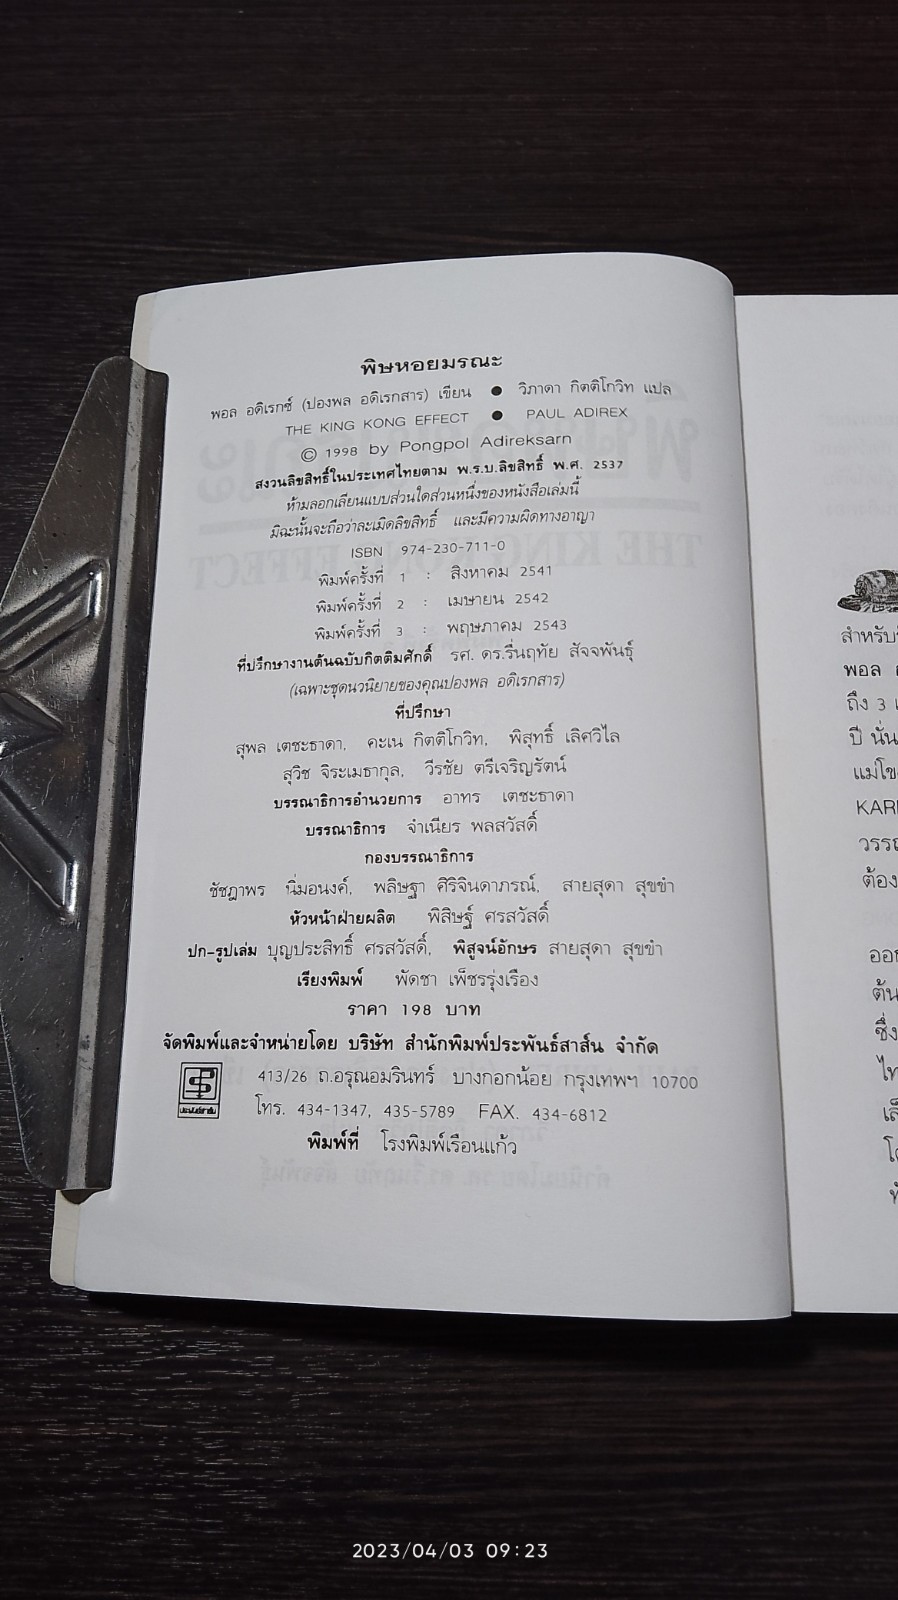 พิษหอยมรณะ
พอล อดิเรกซ์ (ปองพล อดิเรกสาร) เขียน ● วิภาดา กิตติโกวิท แปล
THE KING KONG EFFECT ● PAUL ADIREX
© 1998 by Pongpol Adireksarn
สงวนลิขสิทธิ์ในประเทศไทยตาม พ.ร.บ.ลิขสิทธิ์ พ.ศ. 2537
ห้ามลอกเลียนแบบส่วนใดส่วนหนึ่งของหนังสือเล่มนี้
มิฉะนั้นจะถือว่าละเมิดลิขสิทธิ์ และมีความผิดทางอาญา
ISBN 974-230-711-0
พิมพ์ครั้งที่ 1 : สิงหาคม 2541
พิมพ์ครั้งที่ 2 : เมษายน 2542
พิมพ์ครั้งที่ 3 : พฤษภาคม 2543
ที่ปรึกษางานต้นฉบับกิตติมศักดิ์ รศ. ดร.รื่นฤทัย สัจจพันธุ์
(เฉพาะชุดนวนิยายของคุณปองพล อดิเรกสาร)
ที่ปรึกษา
สุพล เตชะธาดา, คะเน กิตติโกวิท, พิสุทธิ์ เลิศวิไล
สุวิช จิระเมธากุล, วีรชัย ตรีเจริญรัตน์
บรรณาธิการอำนวยการ อาทร เตชะธาดา
บรรณาธิการ จำเนียร พลสวัสดิ์
กองบรรณาธิการ
ชัชฎาพร นิ่มอนงค์, พลิษฐา ศิริจินดาภรณ์, สายสุดา สุขขำ
หัวหน้าฝ่ายผลิต พิสิษฐ์ ศรสวัสดิ์
ปก-รูปเล่ม บุญประสิทธิ์ ศรสวัสดิ์, พิสูจน์อักษร สายสุดา สุขขำ
เรียงพิมพ์ พัดชา เพ็ชรรุ่งเรือง
ราคา 198 บาท
จัดพิมพ์และจำหน่ายโดย บริษัท สำนักพิมพ์ประพันธ์สาส์น จำกัด
ประพันธ์สาส์น
413/26 ถ.อรุณอมรินทร์ บางกอกน้อย กรุงเทพฯ 10700
โทร. 434-1347, 435-5789 FAX. 434-6812
พิมพ์ที่ โรงพิมพ์เรือนแก้ว
สำหรับ
พอล
ถึง 3
ปี นั่น
แม่โข
KAR
วรรณ
ต้อง
ออก
ต้น
ซึ่ง
ไท
เล็
2023/04/03 09:23